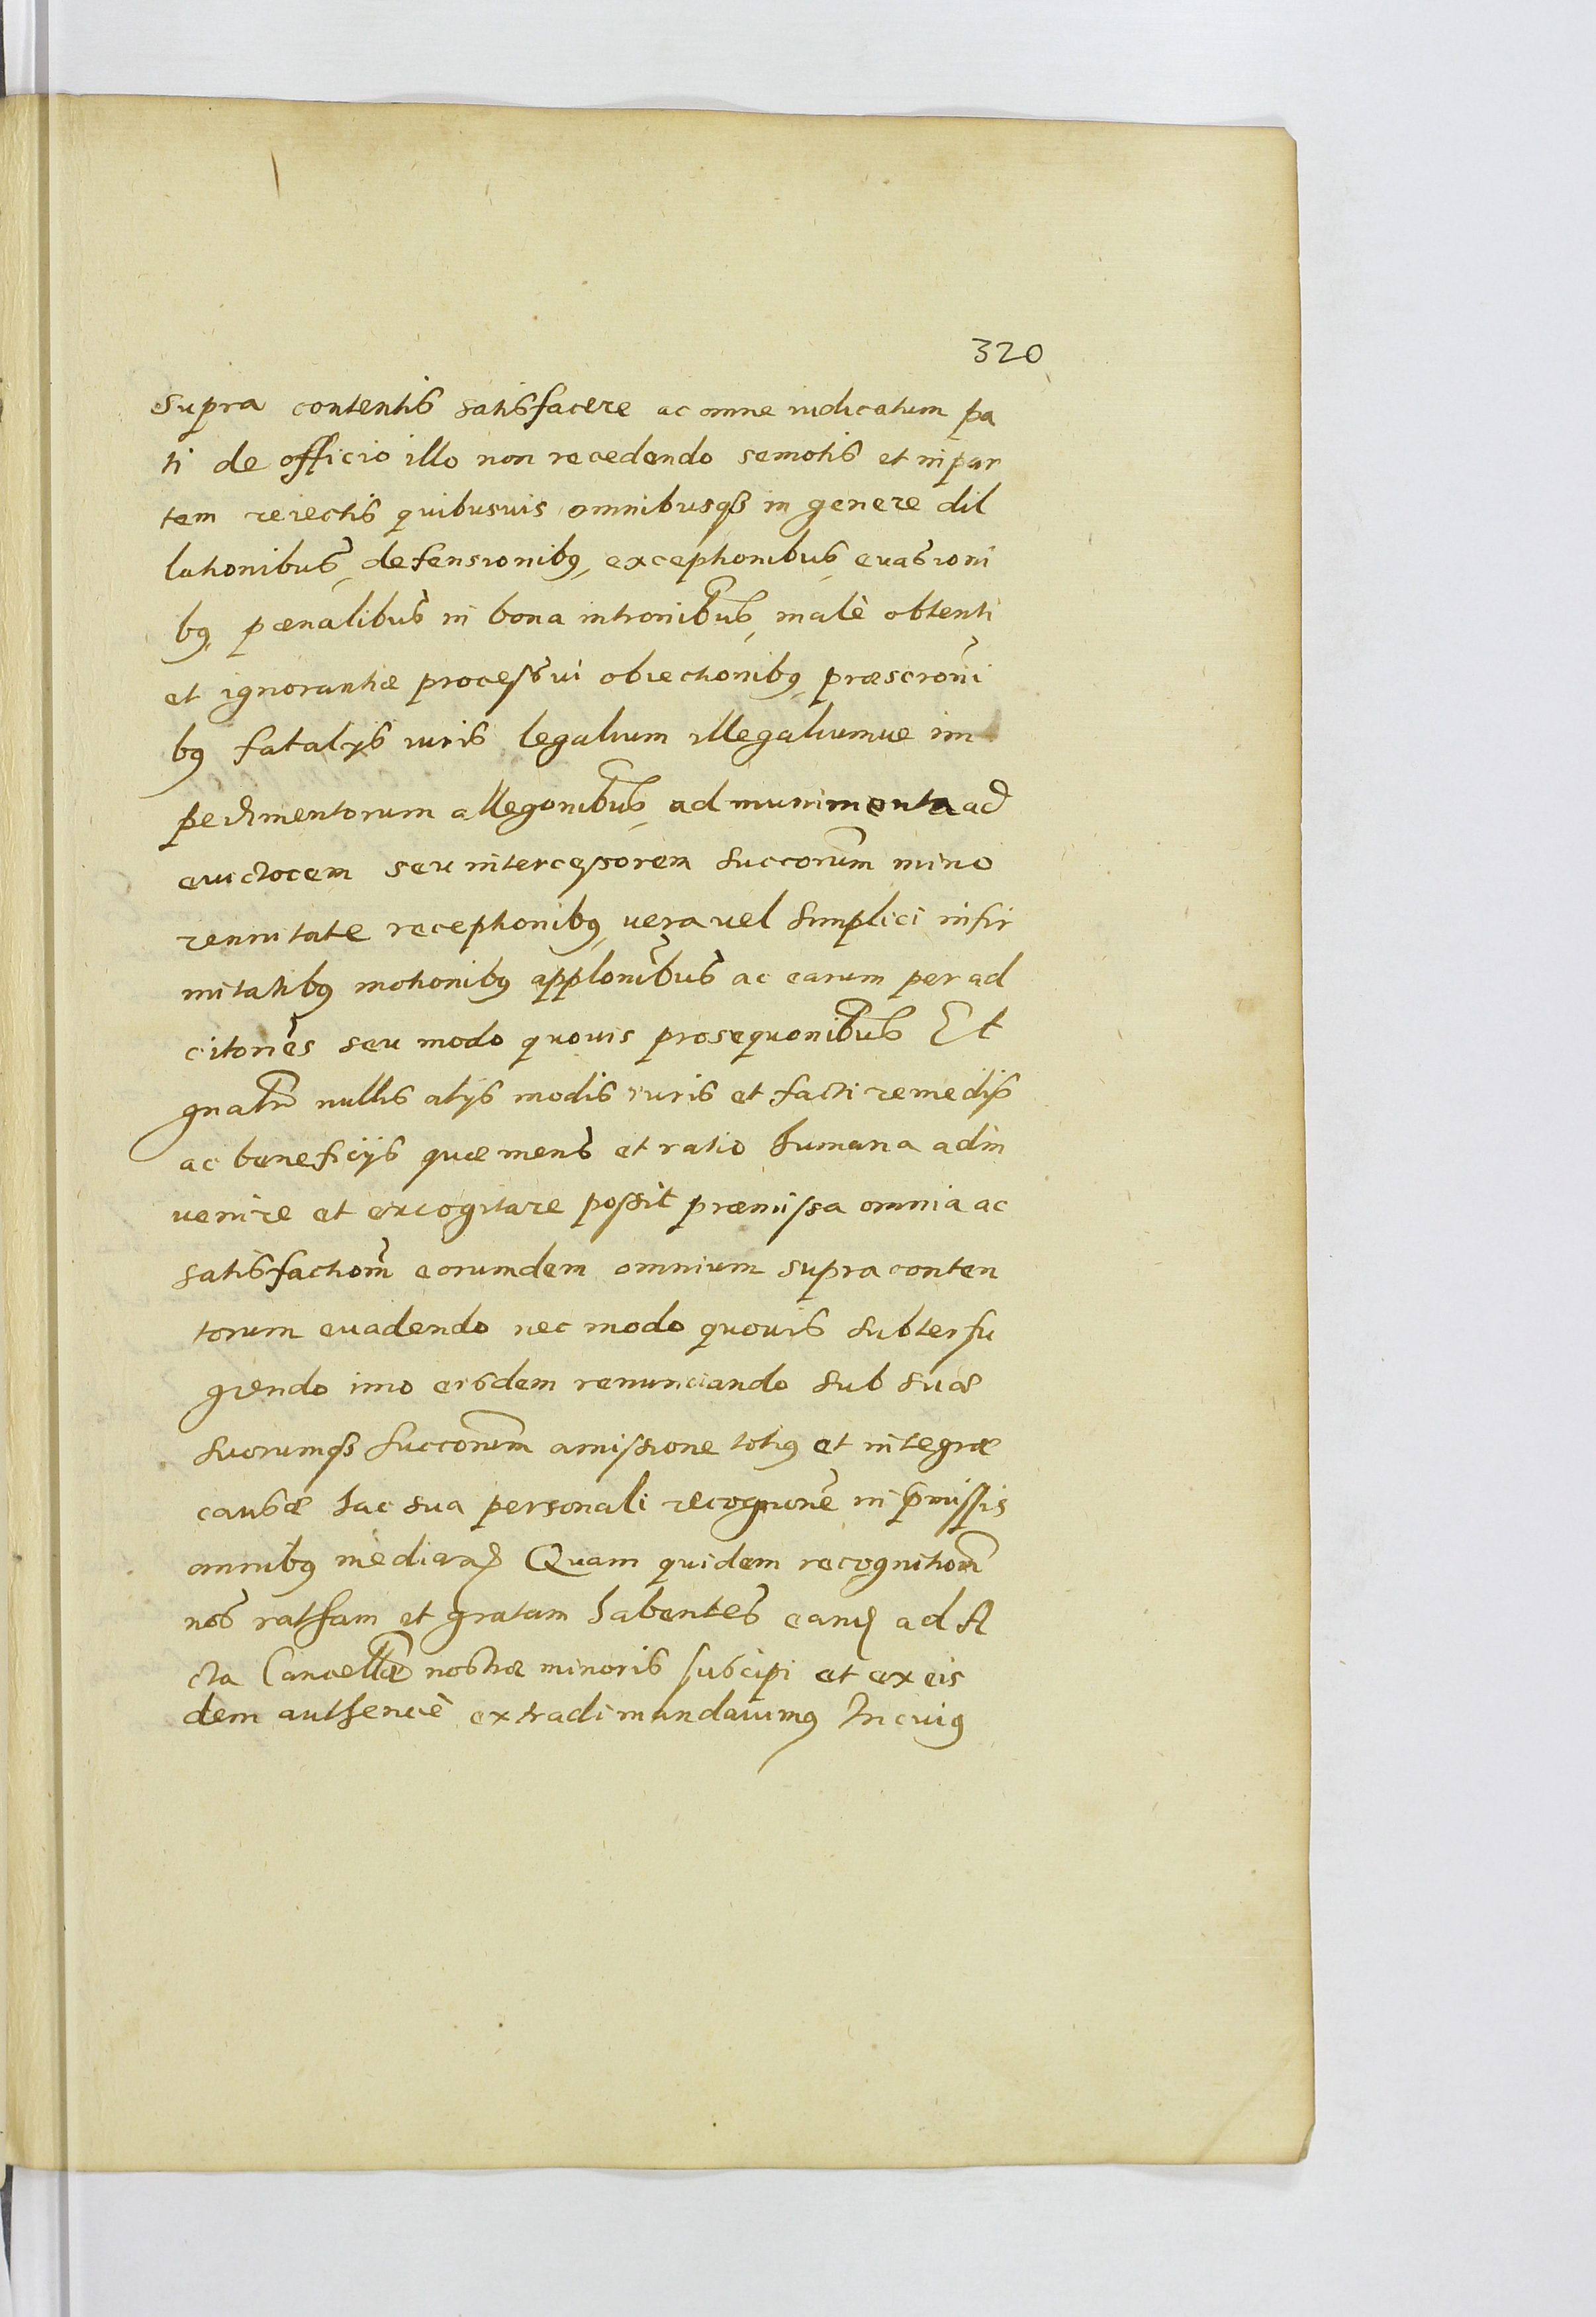 320
supra contentis satisfacere ac omne iudicatum pa
ti de officio illo non recedendo semotis et in par
tem reiectis quibusuis omnibusq in genere dil
lationibus, defensionibq, exceptionibus, euasioni
bq, pœnalibus in bona intronibus, malè obtenti
et ignorantiæ processui obiectionibq, præscroni
bq fatalys iuris legalium illegaliumue im
pedimentorum allegonibus, ad munimenta ad
euictorem seu intercessorem succorum mino
rennitate receptionibq, uera uel simplici infir
mitatibq motionibq applonibus ac earum per ad
citones seu modo quouis prosequonibus Et
gnalr nullis alys modis iuris et facti remedys
ac beneficijs quæ mens et ratio humana adin
uenire et excogitare possit præmissa omnia ac
satisfactiom eorumdem omnium supra conten
torum euadendo nec modo quouis subterfu
giendo imo eisdem renunciando sub suæ
suorumq succorum amissione totiq et integræ
causæ hac sua personali recognone in pmissis
omnibq mediañ Quam quidem recognitiom
nos ratham et gratam habentes eand ad A
cta Cancellæ nostræ minoris suscipi et ex eis
dem authencè extradi mandauimq In cuiq